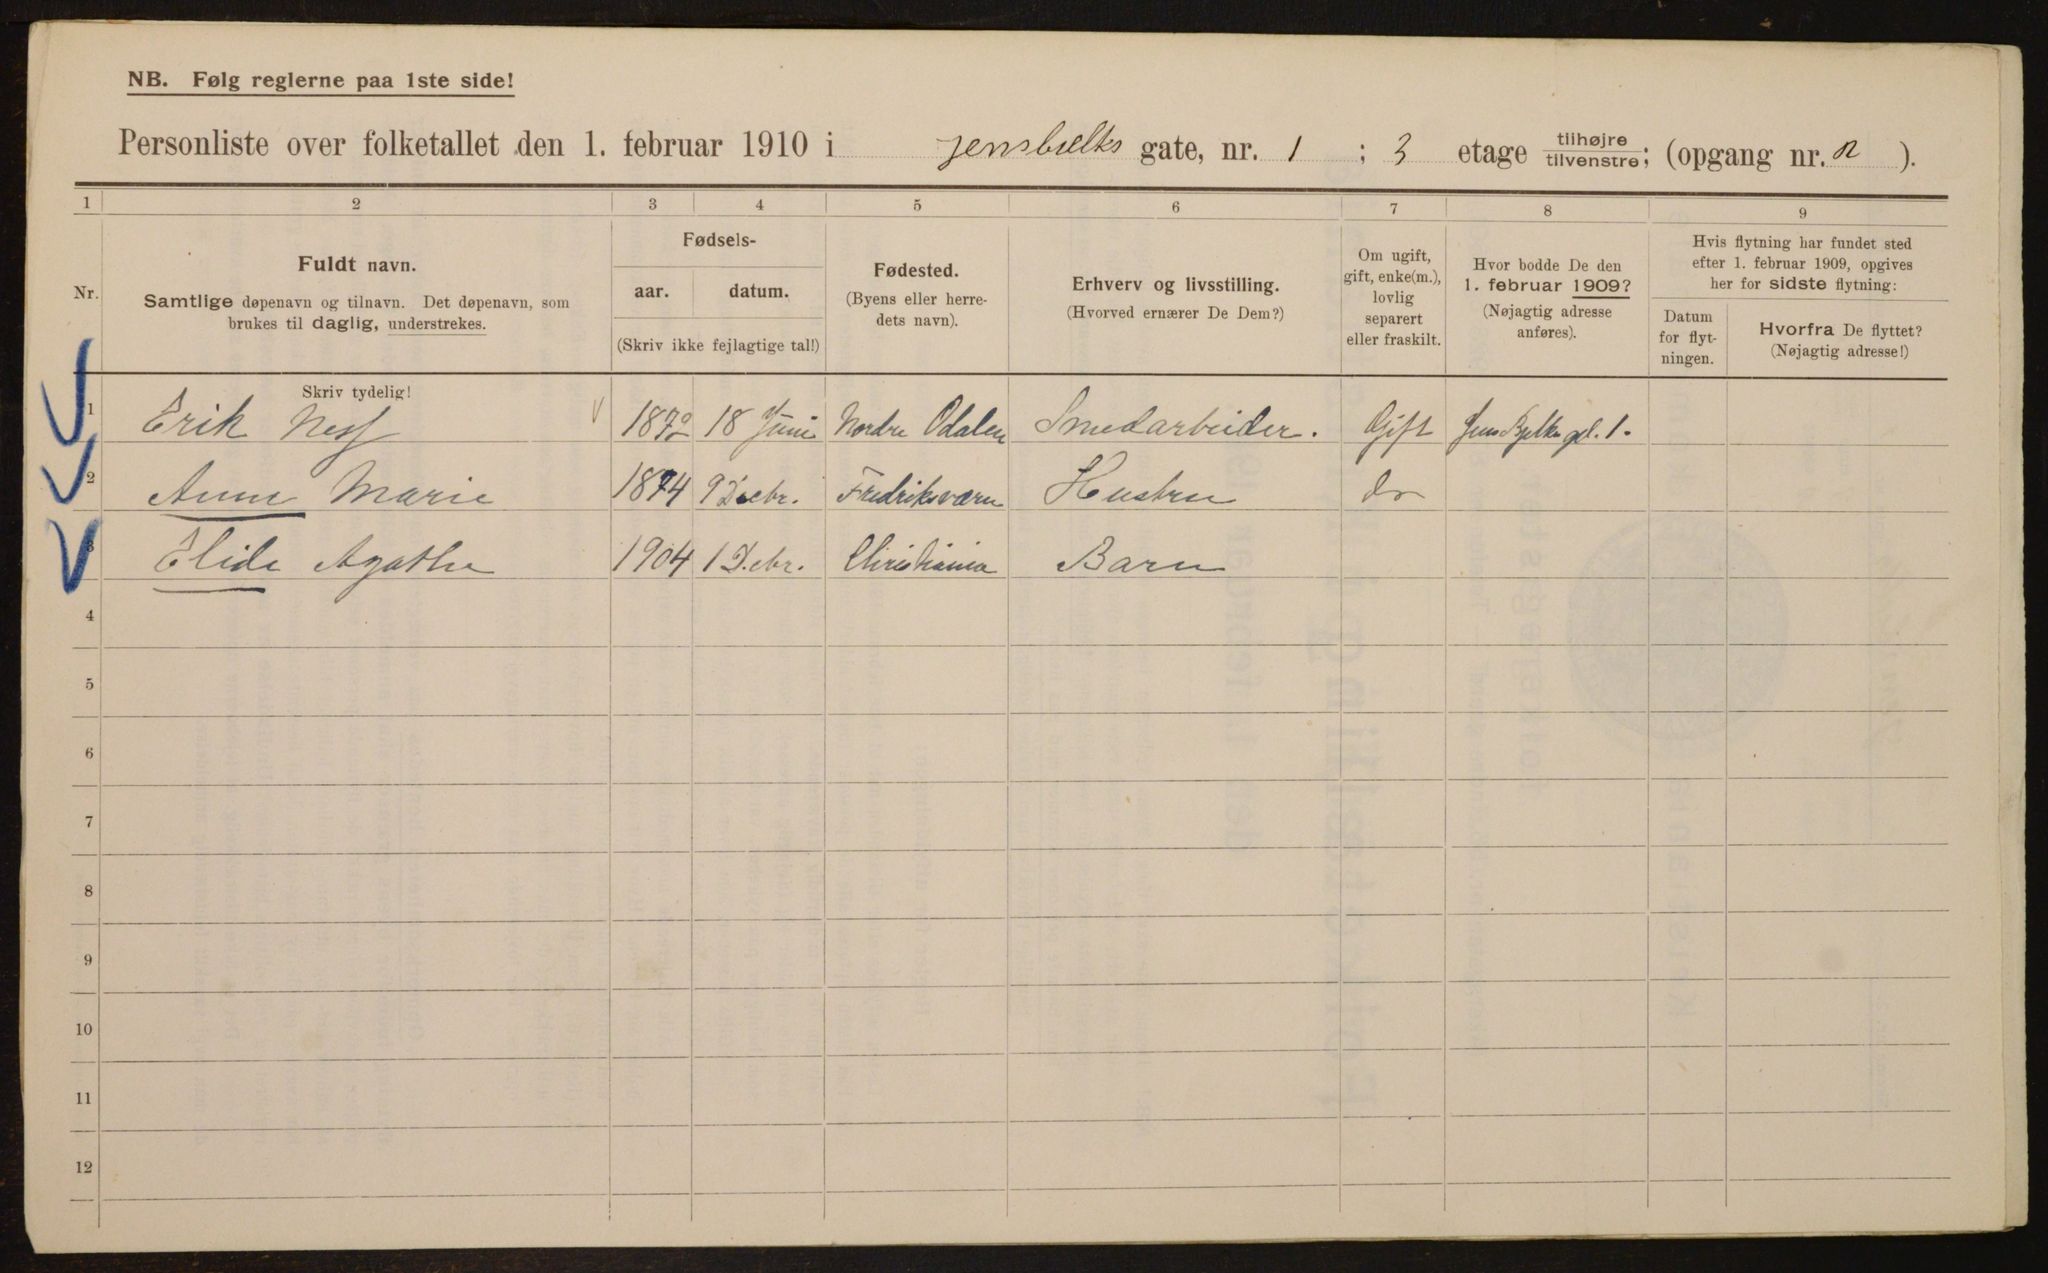 NB. Følg reglerne paa 1ste side!
Personliste over folketallet den 1. februar 1910 i Jensbielks gate, nr. 1 ; 3 etage tilhøjre/tilvenstre; (opgang nr. 2 ).
1 2 3 4 5 6 7 8 9
Nr.
Fuldt navn.
Samtlige døpenavn og tilnavn. Det døpenavn, som
brukes til daglig, understrekes.
Skriv tydelig!
Fødsels-
aar. datum.
(Skriv ikke fejlagtige tal!)
Fødested.
(Byens eller herre-
dets navn).
Erhverv og livsstilling.
(Hvorved ernærer De Dem?)
Om ugift,
gift, enke(m.),
lovlig
separert
eller fraskilt.
Hvor bodde De den
1. februar 1909?
(Nøjagtig adresse
anføres).
Hvis flytning har fundet sted
efter 1. februar 1909, opgives
her for sidste flytning:
Datum
for flyt-
ningen.
Hvorfra De flyttet?
(Nøjagtig adresse!)
1 Erik Ness 1872 18 Juni Nordre Odalen Smedarbeider. Gift Jens Bjelkes gd. 1.
2 Anne Marie 1874 9 Decbr. Fredriksværn Hustru do
3 Elida Agathe 1904 1 Decbr. Christiania Barn
4
5
6
7
8
9
10
11
12